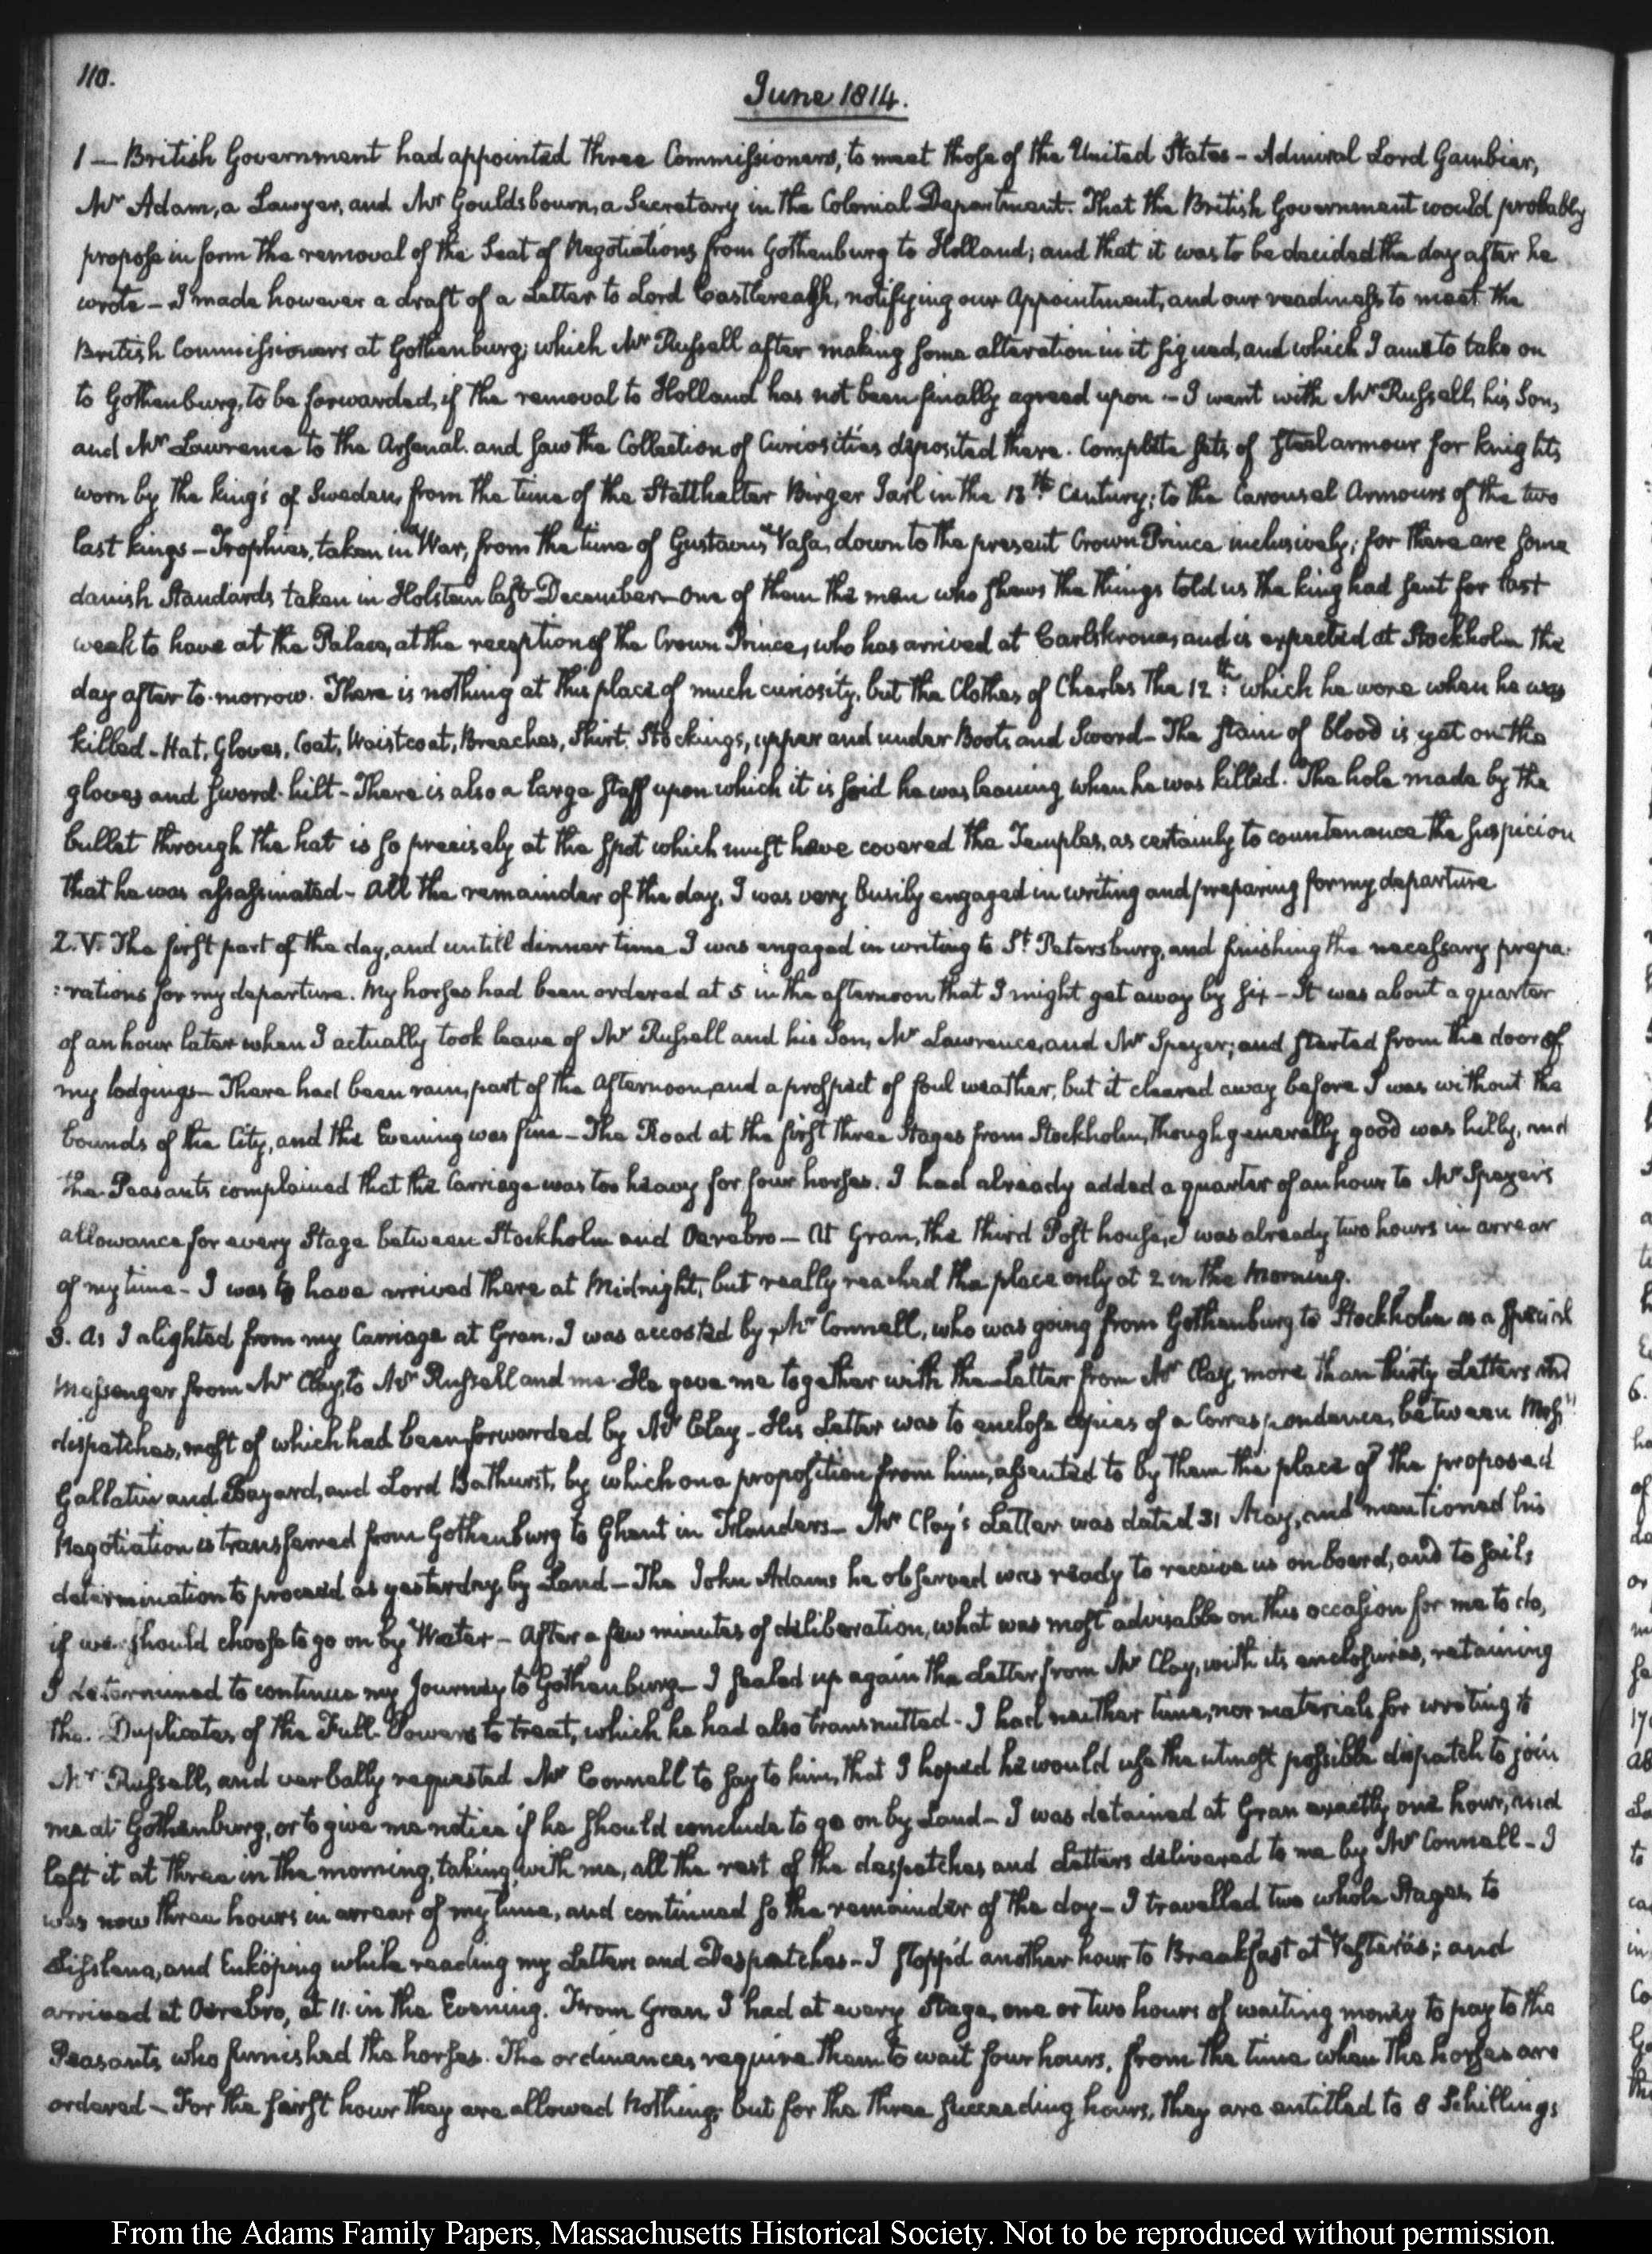 110.
June 1814.
1 — British Government had appointed three Commissioners, to meet those of the United States – Admiral Lord Gambier,
Mr Adam, a Lawyer, and Mr Gouldsbourn, a Secretary in the Colonial Department. That the British Government would probably
propose in form the removal of the Seat of Negotiations from Gothenburg to Holland; and that it was to be decided the day after he
wrote – I made however a draft of a Letter to Lord Castlereagh, notifying our Appointment, and our readiness to meet the
British Commissioners at Gothenburg; which Mr Russell after making some alteration in it signed, and which I am to take on
to Gothenburg, to be forwarded, if the removal to Holland has not been finally agreed upon – I went with Mr Russell, his Son,
and Mr Lawrence to the Arsenal. and saw the Collection of Curiosities deposited there. Complete sets of steel armour for knights
worn by the king's of Sweden, from the time of the Statthalter Birger Jarl in the 13th Century; to the Carousel Armours of the two
last kings – Trophies, taken in War, from the time of Gustavus Vasa, down to the present Crown Prince inclusively; for there are some
danish Standards taken in Holstein last December – one of them the man who shews the things told us the king had sent for last
week to have at the Palace, at the reception of the Crown Prince, who has arrived at Carlskrona, and is expected at Stockholm the
day after to-morrow. There is nothing at this place of much curiosity, but the Clothes of Charles the 12th: which he wore when he was
killed – Hat, Gloves, Coat, Waistcoat, Breeches, Shirt, Stockings, upper and under Boots and Sword – The stain of blood is yet on the
gloves and sword-hilt – There is also a large staff upon which it is said he was leaning when he was killed. The hole made by the
bullet through the hat is so precisely at the spot which must have covered the Temples, as certainly to countenance the suspicion
that he was assassinated – All the remainder of the day, I was very busily engaged in writing and preparing for my departure
2. V. The first part of the day, and untill dinner time I was engaged in writing to St Petersburg, and finishing the necessary prepa-
:rations for my departure. My horses had been ordered at 5 in the afternoon that I might get away by six – It was about a quarter
of an hour later when I actually took leave of Mr Russell and his Son, Mr Lawrence, and Mr Speyer; and started from the door of
my lodgings – There had been rain, part of the Afternoon, and a prospect of foul weather, but it cleared away before I was without the
bounds of the City, and the Evening was fine – The Road at the first three Stages from Stockholm, though generally good was hilly, and
the Peasants complained that the Carriage was too heavy for four horses. I had already added a quarter of an hour to Mr Speyer's
allowance for every Stage between Stockholm and Oerebro – At Gran, the third Post house, I was already two hours in arrear
of my time – I was to have arrived there at Midnight, but really reached the place only at 2 in the Morning.
3. As I alighted from my Carriage at Gran, I was accosted by Mr Connell, who was going from Gothenburg to Stockholm as a special
Messenger from Mr Clay, to Mr Russell and me. He gave me together with the Letter from Mr Clay, more than thirty Letters and
dispatches, most of which had been forwarded by Mr Clay – His Letter was to enclose Copies of a Correspondence, between Messrs
Gallatin and Bayard, and Lord Bathurst, by which on a proposition from him, assented to by them the place of the proposed
Negotiation is transferred from Gothenburg to Ghent in Flanders – Mr Clay's Letter was dated 31 May, and mentioned his
determination to proceed as yesterday, by Land – The John Adams he observed was ready to receive us on board, and to sail,
if we should choose to go on by Water – After a few minutes of deliberation, what was most advisable on this occasion for me to do,
I determined to continue my Journey to Gothenburg – I sealed up again the Letter from Mr Clay, with its enclosures, retaining
the Duplicates of the Full-Powers to treat, which he had also transmitted – I had neither time, nor materials for writing to
Mr Russell, and verbally requested Mr Connell to say to him, that I hoped he would use the utmost possible dispatch to join
me at Gothenburg, or to give me notice if he should conclude to go on by Land – I was detained at Gran exactly one hour, and
left it at three in the morning, taking with me, all the rest of the despatches and Letters delivered to me by Mr Connell – I
was now three hours in arrear of my time, and continued so the remainder of the day – I travelled two whole Stages, to
Lislena, and Enköping while reading my Letters and Despatches – I stopp'd another hour to Breakfast at Vesterås; and
arrived at Oerebro, at 11 in the Evening. From Gran I had at every Stage, one or two hours of waiting money to pay to the
Peasants who furnished the horses. The ordinances require them to wait four hours, from the time when the horses are
ordered – For the first hour they are allowed Nothing; but for the three succeeding hours, they are entitled to 8 Schillings
From the Adams Family Papers, Massachusetts Historical Society. Not to be reproduced without permission.